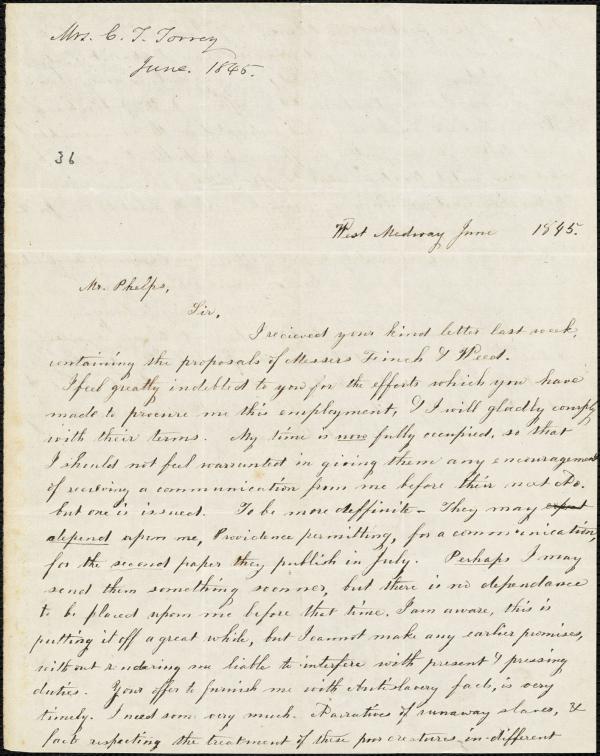 Mrs. C. T. Torrey
June. 1845.
36
West Medway June 1845.
Mr. Phelps,
Sir,
I recieved your kind letter last week,
containing the proposals of Messers Finch & Weed.
I feel greatly indebted to you for the efforts which you have
made to procure me this employment, & I will gladly comply
with their terms. My time is now fully occupied, so that
I should not feel warranted in giving them any encouragement
of receiving a communication from me before their next No.
but one is issued. To be more deffinite - They may expect
depend upon me, Providence permitting, for a communication,
for the second paper they publish in July. Perhaps I may
send them something sooner, but there is no dependance
to be placed upon me before that time. I am aware, this is
putting it off a great while, but I cannot make any earlier promises,
without rendering me liable to interfere with present & pressing
duties. Your offer to furnish me with Antislavery facts, is very
timely. I need some very much. Narratives of runaway slaves, &
facts respecting the treatment of these poor creatures in different